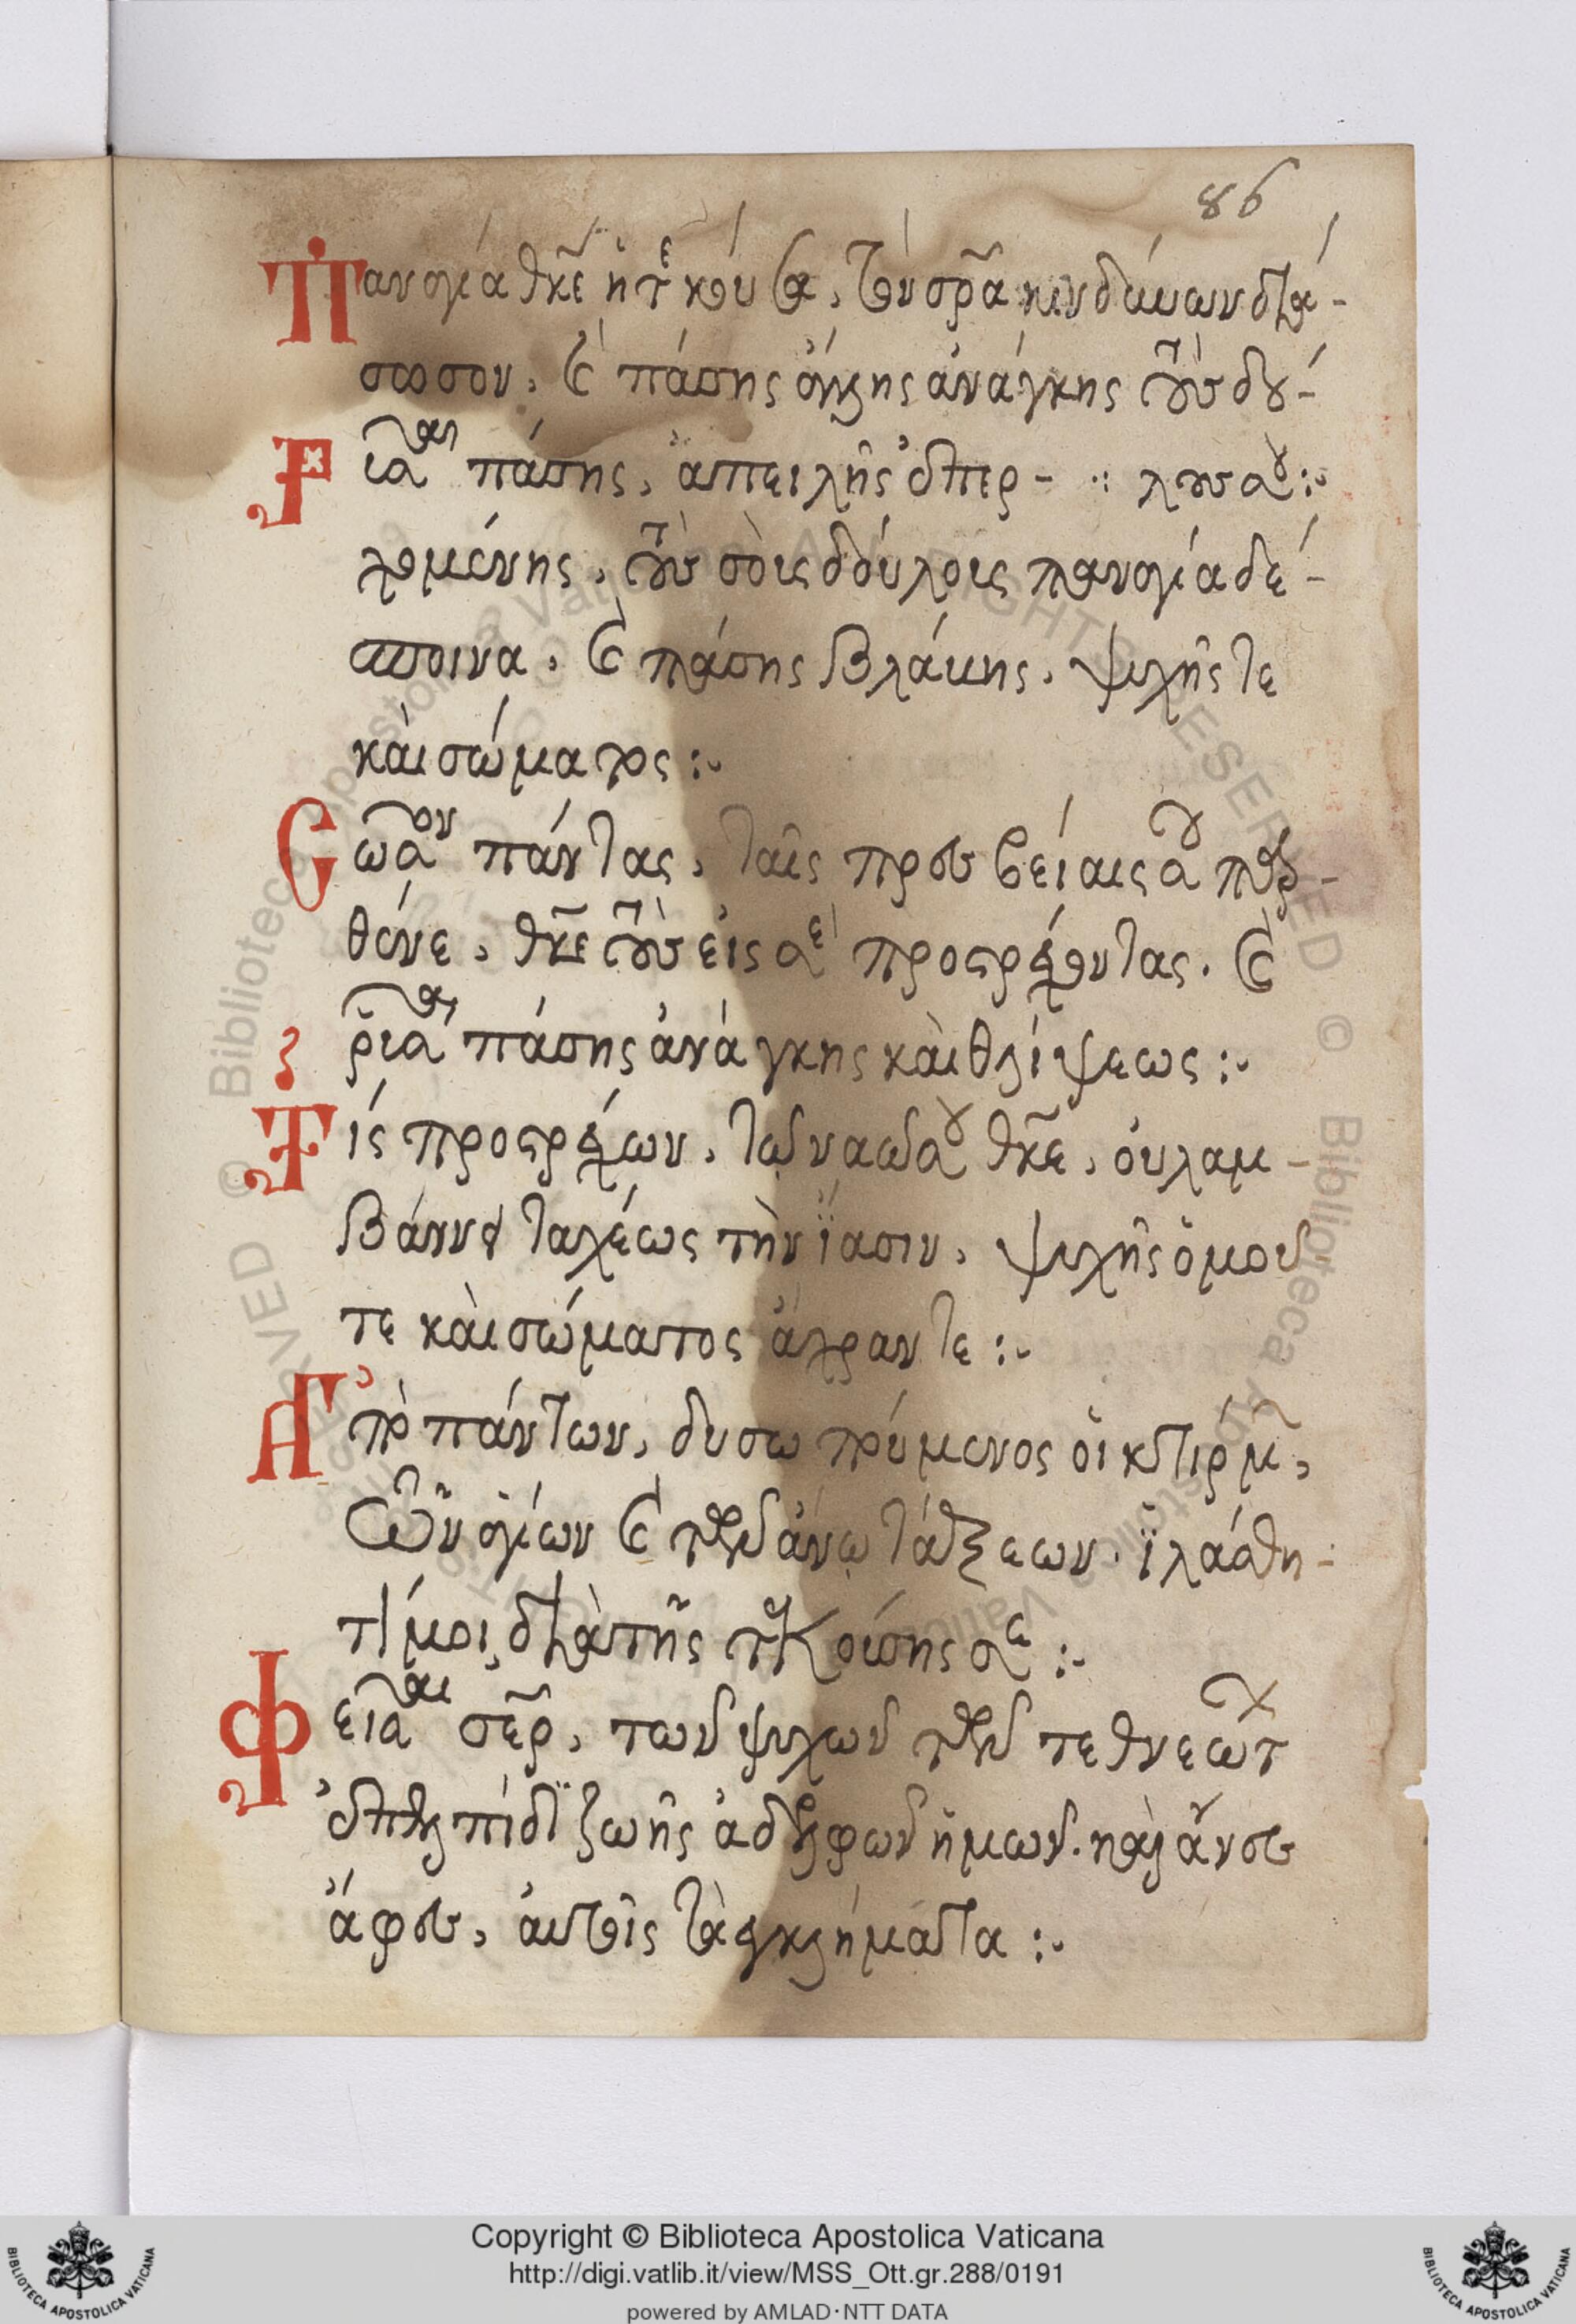 86
Παναγία θκε ἡ τεκοῦσα, τὸν σρα κινδύνων διά-
σωσον, καὶ πάσης ἄλλης ἀνάγκης τοὺς δού-
Ρῦσαι πάσης, ἀπειλῆς ἐπερ- λους σου :~
χομένης, τοὺς σοὺς δούλους παναγία δέ-
σποινα, καὶ πάσης βλάβης, ψυχῆς τε
καὶ σώματος :~
Σῶσον πάντας, ταῖς πρεσβείαις σου παρ-
θένε, θκε τοὺς εἰς σὲ προστρέχοντας, καὶ
ῥῦσαι πάσης ἀνάγκης καὶ θλίψεως :~
Τίς προστρέχων, τῷ ναῷ σου θκε, οὐ λαμ-
βάνει ταχέως τὴν ἴασιν, ψυχῆς ὁμοῦ
τε καὶ σώματος ἄχραντε :~
Ὑπὸ πάντων, δυσωπούμενος οἰκτίρμ,
τῶν ἁγίων καὶ τῶν ἄνω τάξεων, ἱλάσθη-
τί μοι, διὰ τῆς τεκούσης σε :~
Φεῖσαι σερ, τῶν ψυχῶν τῶν τεθνεώτ
ἐπ' ἐλπίδι ζωῆς ἀδελφῶν ἡμῶν. καὶ ἄνες
ἄφες, αὐτοῖς τὰ ἐγκλήματα :~
Copyright © Biblioteca Apostolica Vaticana
http://digi.vatlib.it/view/MSS_Ott.gr.288/0191
powered by AMLAD·NTT DATA
BIBLIOTECA APOSTOLICA VATICANA
BIBLIOTECA APOSTOLICA VATICANA